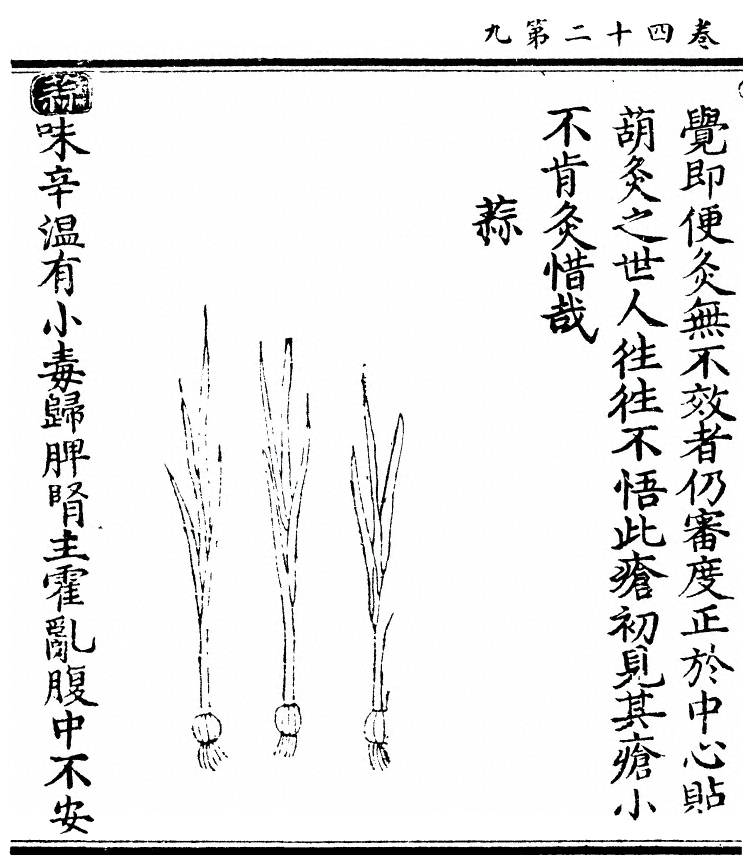 卷四十二第九
覺即便灸無不效者仍審度正於中心貼
葫灸之世人徃徃不悟此瘡初見其瘡小
不肯灸惜哉
蒜
蒜味辛温有小毒歸脾腎主霍亂腹中不安